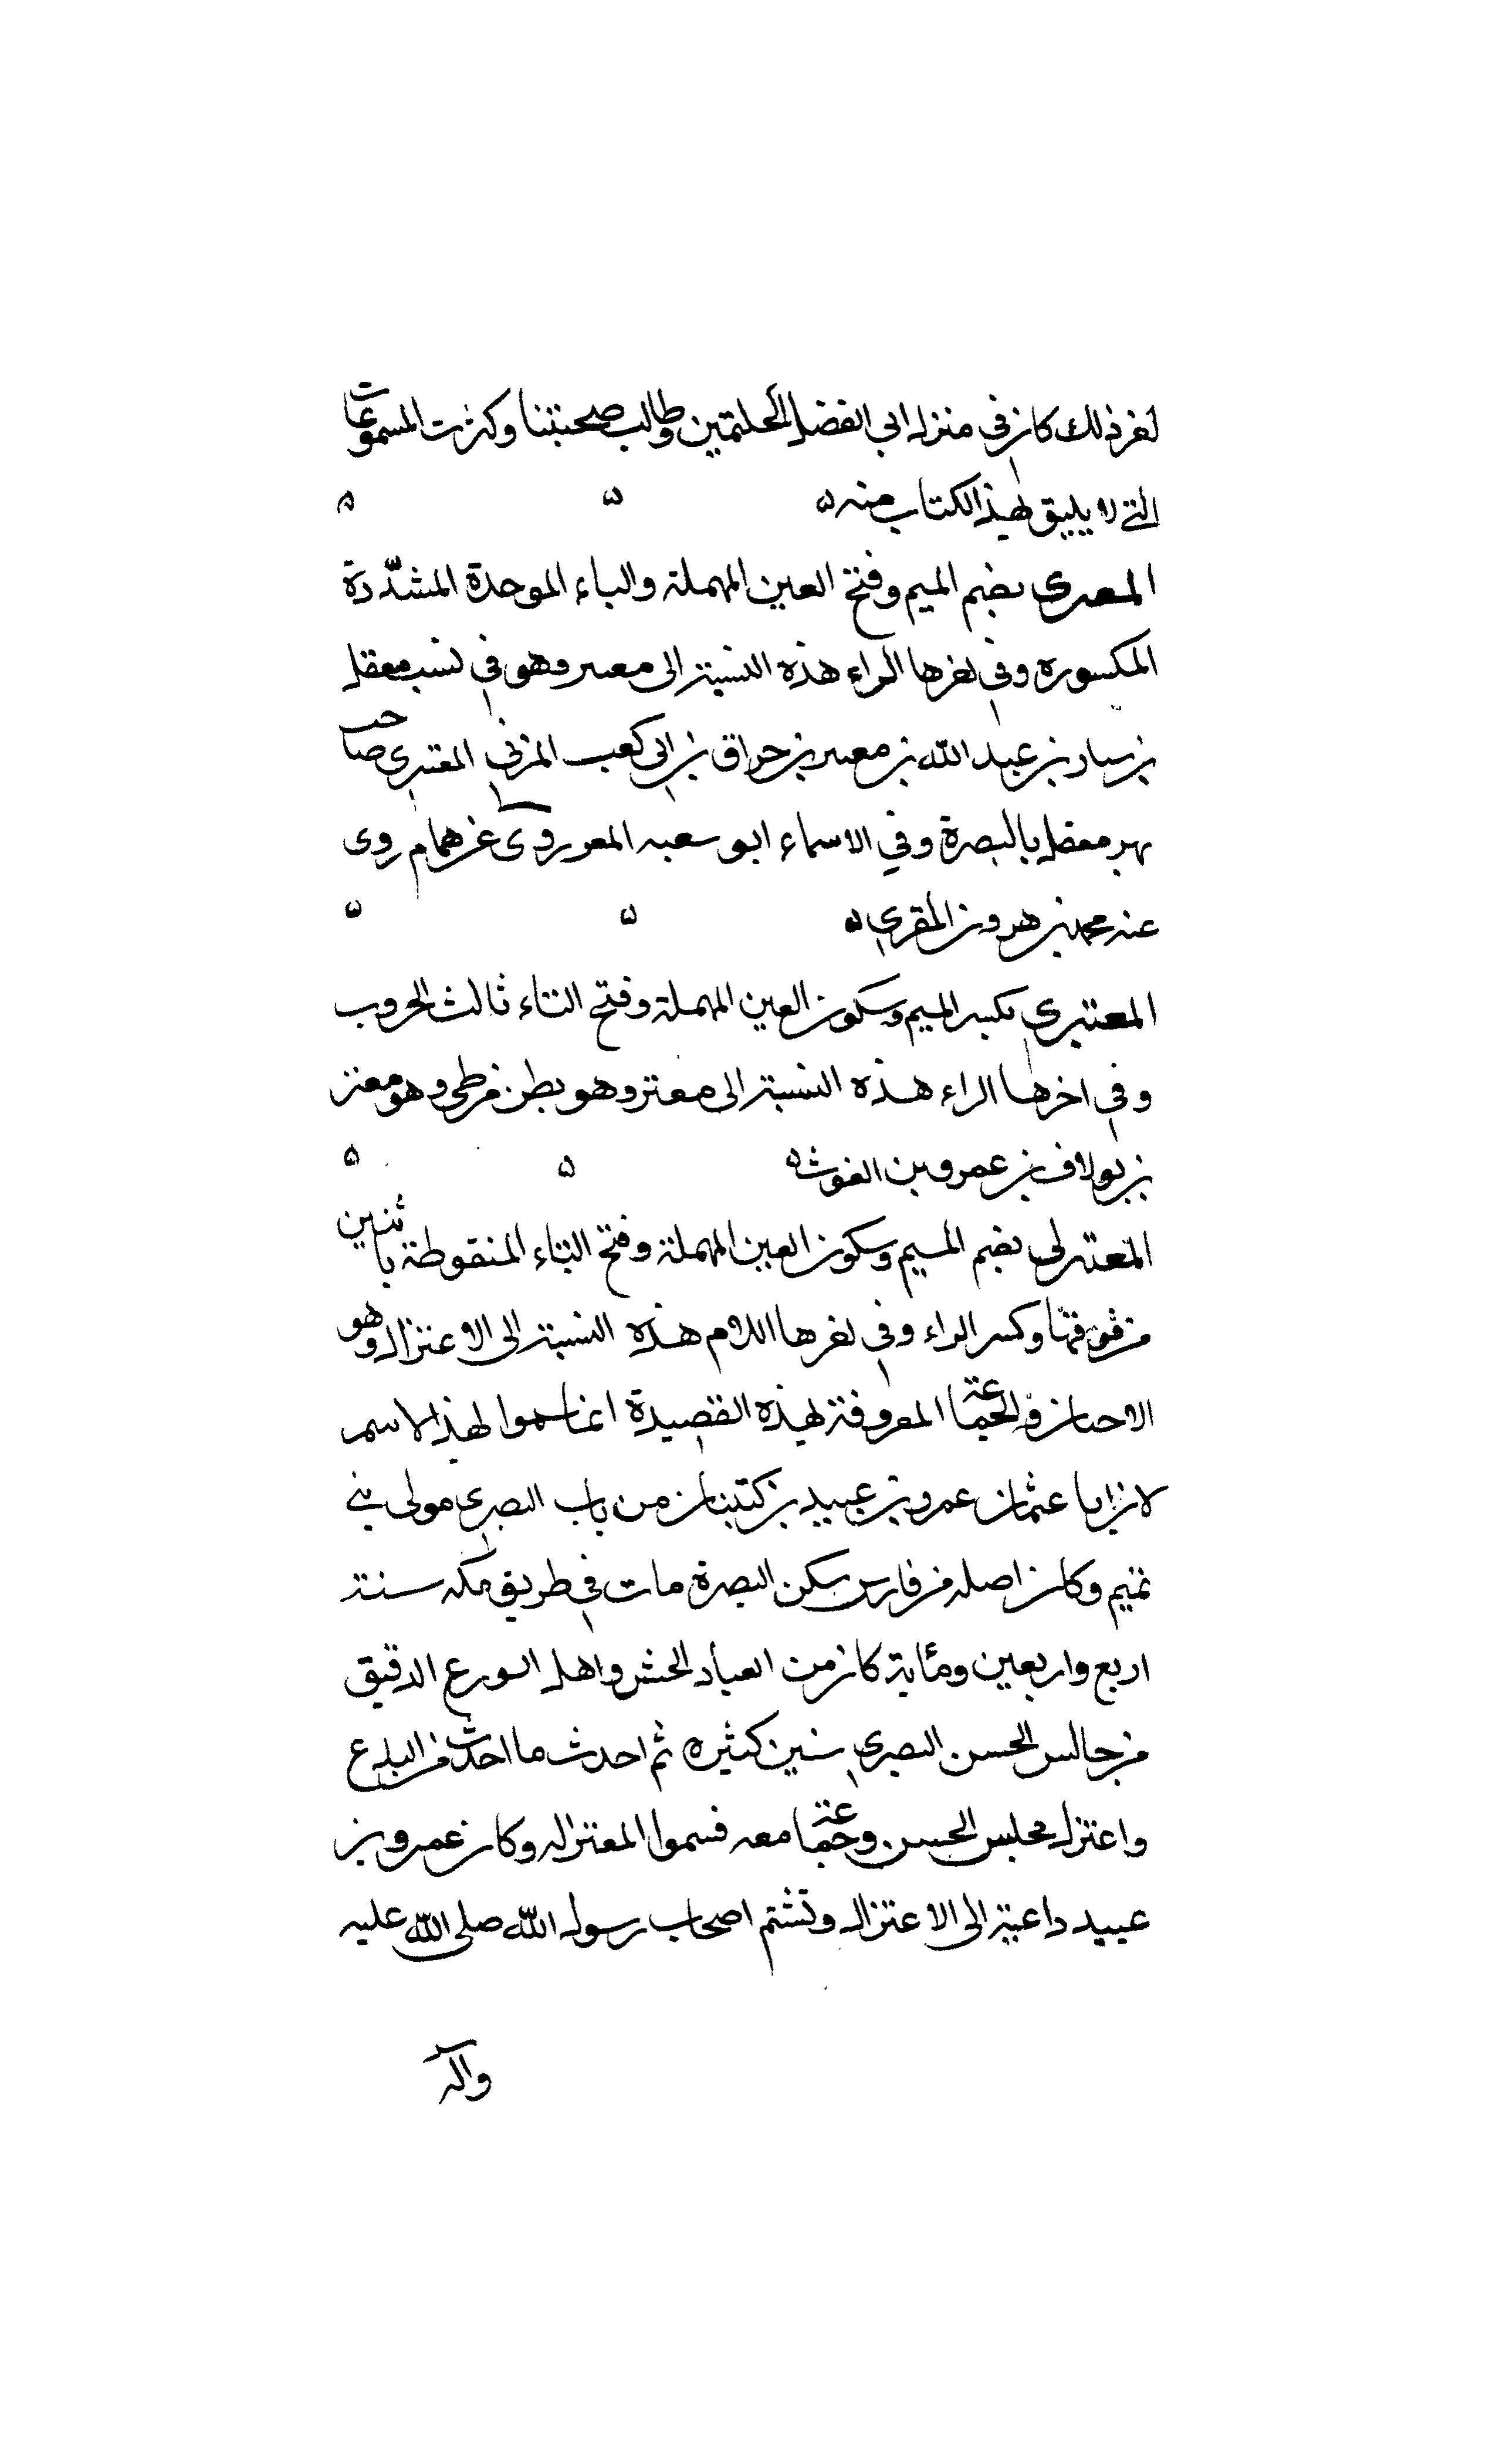 لغر ذلك كان في منزله ابي الفضل الحلمتين وطالب صحبتنا وكثرت المسموعات
التي لا يليق لهذا الكتاب منه ه ه ه
المعبري بضم الميم وفتح العين المهملة والباء الموحدة المشددة
المكسوره وفي اخرها الراء هذه النسبة الى معبر وهو في نسب معقل
بن يسار بن عبد الله بن معبر بن حراق بن ابي كعب المزني المعبري صاحب
نهر معقل بالبصرة وفي الاسماء ابو سعيد المعبر روى عن همام روى
عنه محمد بن هرون المقري ه ه ه
المعتري بكسر الميم وسكون العين المهملة وفتح التاء ثالث الحروف
وفي اخرها الراء هذه النسبة الى معتر وهو بطن من طي وهو معتر
بن بولاف بن عمرو بن الغوث ه ه ه
المعتزلي بضم الميم وسكون العين المهملة وفتح التاء المنقوطة باثنين
من فوقها وكسر الزاء وفي اخرها اللام هذه النسبة الى الاعتزال وهو
الاجتناب والجماعة المعروفة لهذه القصيدة انما سموا لهذا الاسم
لان ابا عثمان عمرو بن عبيد بن من باب البصري مولى بني
تميم وكان اصله من فارس سكن البصرة مات في طريق مكه سنة
اربع واربعين ومئاية كان من العباد الخشن واهل الورع الدقيق
من جالس الحسن البصري سنين كثيره ثم احدث ما احدث من البدع
واعتزل مجلس الحسن وجماعة معه فسموا المعتزله وكان عمرو بن
عبيد داعية الى الاعتزال وتشتم اصحاب رسول الله صلى الله عليه
واله